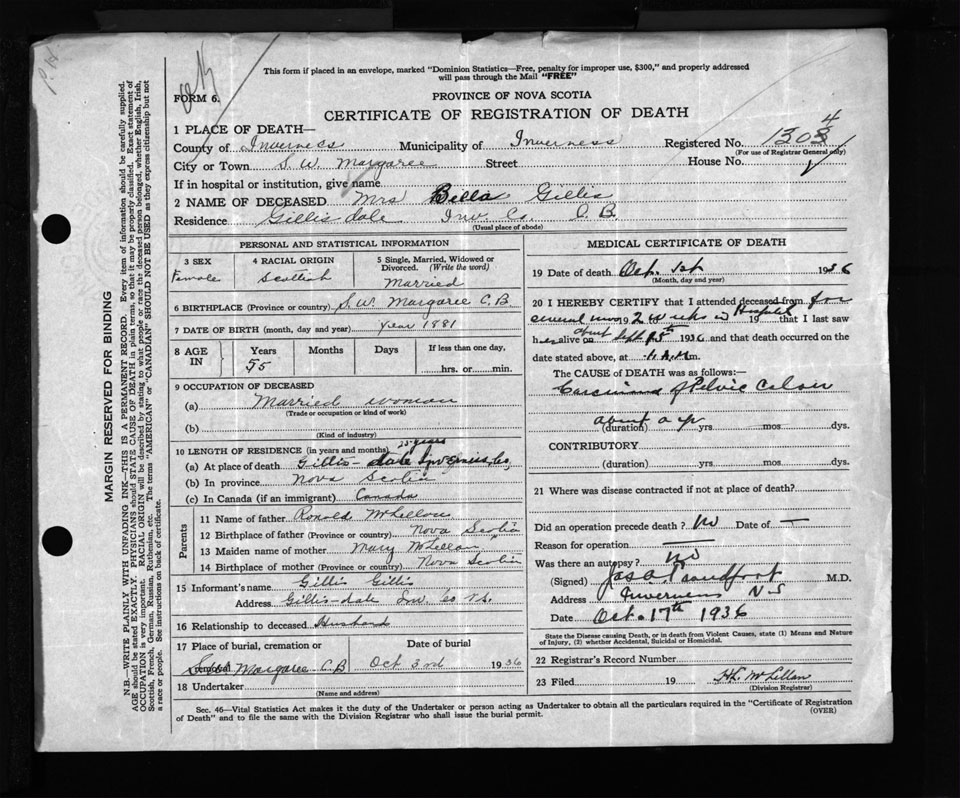 This form if placed in an envelope, marked "Dominion Statistics—Free, penalty for improper use, $300," and properly addressed
will pass through the Mail "FREE"
FORM 6.
PROVINCE OF NOVA SCOTIA
CERTIFICATE OF REGISTRATION OF DEATH
1 PLACE OF DEATH—
County of Inverness Municipality of Inverness Registered No. 1304
(For use of Registrar General only)
City or Town S. W. Margaree Street House No.
If in hospital or institution, give name
2 NAME OF DECEASED Mrs Bella Gillis
Residence Gillis dale Inv Co. C. B.
(Usual place of abode)
PERSONAL AND STATISTICAL INFORMATION
3 SEX 4 RACIAL ORIGIN 5 Single, Married, Widowed or
Divorced. (Write the word)
Female Scottish Married
6 BIRTHPLACE (Province or country) S. W. Margaree C. B.
7 DATE OF BIRTH (month, day and year) Year 1881
8 AGE IN Years Months Days If less than one day,
55 hrs. or min.
9 OCCUPATION OF DECEASED
(a) Married woman
(Trade or occupation or kind of work)
(b)
(Kind of industry)
10 LENGTH OF RESIDENCE (in years and months) years
(a) At place of death Gillis-dale Inverness Co,
(b) In province Nova Scotia
(c) In Canada (if an immigrant) Canada
Parents
11 Name of father Ronald McLellan
12 Birthplace of father (Province or country) Nova Scotia
13 Maiden name of mother Mary McLellan
14 Birthplace of mother (Province or country) Nova Scotia
15 Informant's name Gillis Gillis
Address Gillis-dale Inv. Co N.S.
16 Relationship to deceased Husband
17 Place of burial, cremation or Date of burial
removal Margaree C.B Oct 3rd 1936
18 Undertaker
(Name and address)
MEDICAL CERTIFICATE OF DEATH
19 Date of death Oct. 1st 1936
(Month, day and year)
20 I HEREBY CERTIFY that I attended deceased from for
several 19 2 weeks in Hospital 19 that I last saw
her alive on about Sept 1936 and that death occurred on the
date stated above, at A.M. m.
The CAUSE of DEATH was as follows:
Carcinoma of Pelvic Colon
about a yr
(duration) yrs mos. dys.
CONTRIBUTORY
(duration) yrs. mos. dys.
21 Where was disease contracted if not at place of death?
Did an operation precede death? No Date of —
Reason for operation —
Was there an autopsy? No
(Signed) M.D.
Address Inverness N-S
Date Oct. 17th 1936
State the Disease causing Death, or in death from Violent Causes, state (1) Means and Nature
of Injury, (2) whether Accidental, Suicidal or Homicidal.
22 Registrar's Record Number
23 Filed 19 McLellan
(Division Registrar)
Sec. 46—Vital Statistics Act makes it the duty of the Undertaker or person acting as Undertaker to obtain all the particulars required in the "Certificate of Registration
of Death" and to file the same with the Division Registrar who shall issue the burial permit.
(OVER)
MARGIN RESERVED FOR BINDING
N.B.—WRITE PLAINLY WITH UNFADING INK—THIS IS A PERMANENT RECORD. Every item of information should be carefully supplied.
AGE should be stated EXACTLY. PHYSICIANS should STATE CAUSE OF DEATH in plain terms, so that it may be properly classified. Exact statement of
OCCUPATION is very important. RACIAL ORIGIN will be described by stating to what people or race the deceased person belonged, whether English, Irish,
Scottish, French, German, Russian, Ruthenian, etc. The terms "AMERICAN" or "CANADIAN" SHOULD NOT BE USED as they express citizenship but not
a race or people. See instructions on back of certificate.